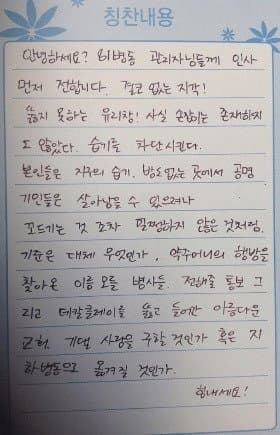 칭찬내용
안녕하세요? 81병동 관리자님들께 인사
먼저 전합니다. 결코 없는 지각!
뚫지 못하는 유리창! 사실 손잡이는 존재하지
도 않았다. 습기를 차단시킨다.
본인들은 지주의 습기. 밤도없는 곳에서 공명
기인들은 살아남을 수 있으려나
꼬드기는 것 조차 멀쩡하지 않은 것처럼,
기준은 대체 무엇인가, 약주머니의 행방을
찾아온 이름 모를 병사들. 전해줄 통보 그
리고 데칼클레이를 뚫고 들어간 아름다운
교회, 기댈 사랑을 구할 것인가 혹은 지
하병동으로 옮겨질 것인가.
힘내세요!